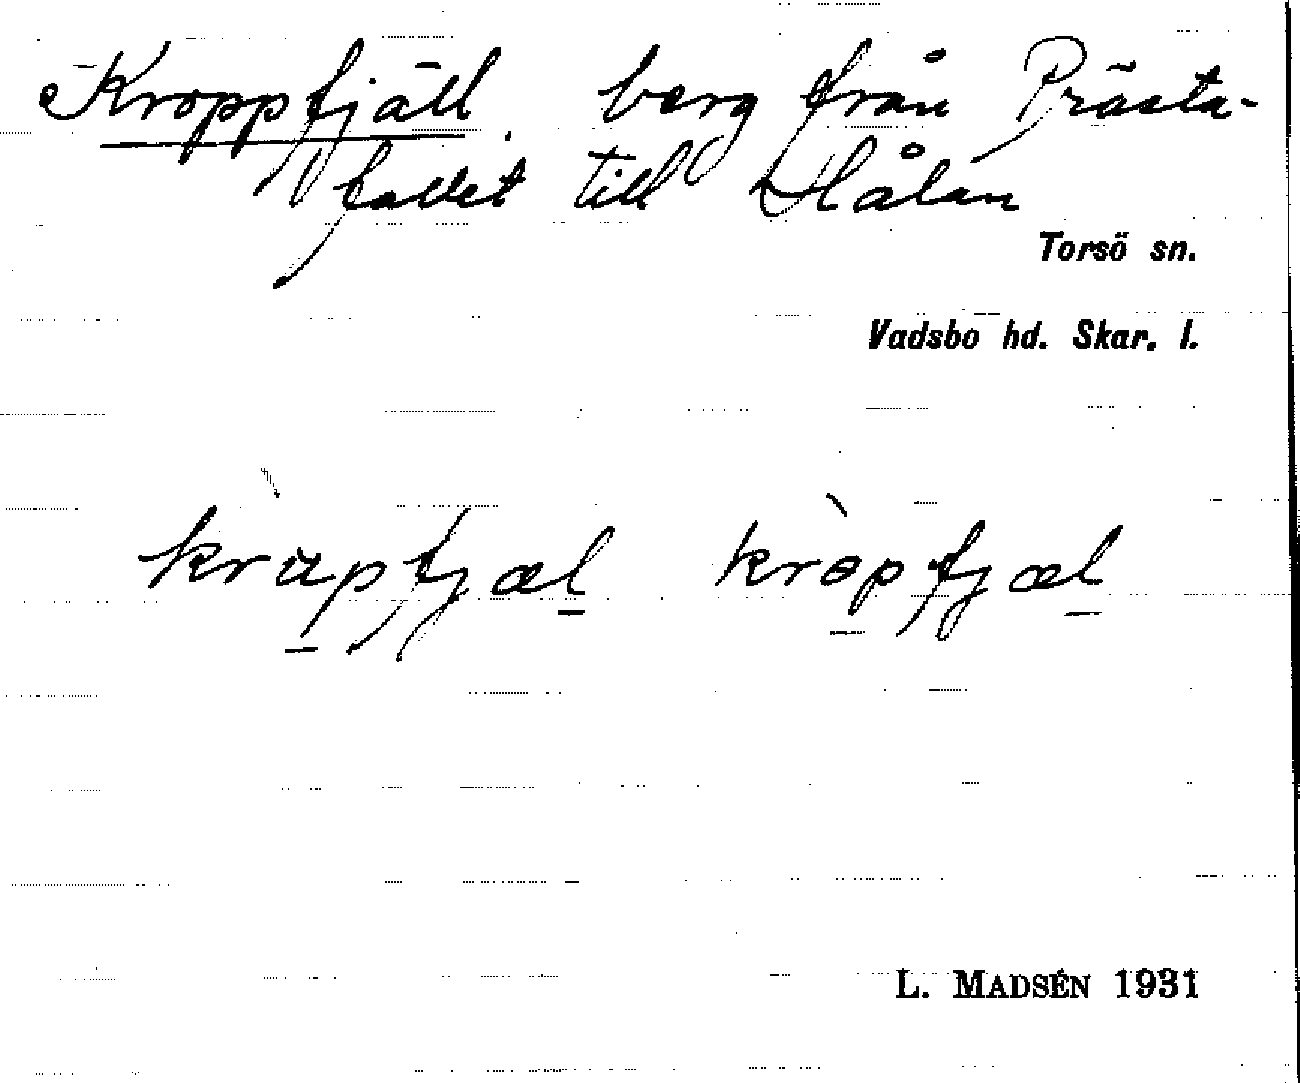 Kroppfjäll. berg från Prästa-
fallet till Hålan
Torsö sn.
Vadsbo hd. Skar. l.
kràpfjæl kròpfjæl
L. MADSÉN 1931